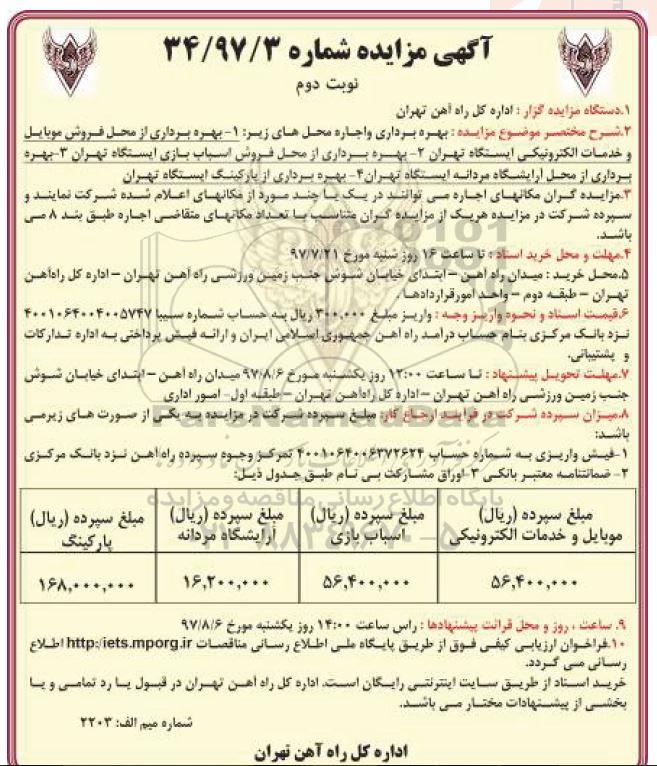 آگهی مزایده شماره ۳۴/۹۷/۳
نوبت دوم
۱.دستگاه مزایده گزار : اداره کل راه آهن تهران
۲.شرح مختصر موضوع مزایده : بهره برداری واجاره محل های زیر: ۱- بهره برداری از محل فروش موبایل
و خدمات الکترونیکی ایستگاه تهران ۲- بهره برداری از محل فروش اسباب بازی ایستگاه تهران ۳-بهره
برداری از محل آرایشگاه مردانه ایستگاه تهران۴- بهره برداری از پارکینگ ایستگاه تهران
۳.مزایده گران مکانهای اجاره می توانند در یک یا چند مورد از مکانهای اعلام شده شرکت نمایند و
سپرده شرکت در مزایده هریک از مزایده گران متناسب با تعداد مکانهای متقاضی اجاره طبق بند ۸ می
باشد.
۴.مهلت و محل خرید اسناد : تا ساعت ۱۶ روز شنبه مورخ ۹۷/۷/۲۱
۵.محل خرید : میدان راه آهن – ابتدای خیابان شوش جنب زمین ورزشی راه آهن تهران – اداره کل راه‌آهن
تهران – طبقه دوم – واحد امورقراردادها.
۶.قیمت اسناد و نحوه واریز وجه : واریز مبلغ ۳۰۰,۰۰۰ ریال به حساب شماره سیبا ۴۰۰۱۰۶۴۰۰۴۰۰۵۷۴۷
نزد بانک مرکزی بنام حساب درآمد راه آهن جمهوری اسلامی ایران و ارائه فیش پرداختی به اداره تدارکات
و پشتیبانی.
۷.مهلت تحویل پیشنهاد : تا ساعت ۱۲:۰۰ روز یکشنبه مورخ ۹۷/۸/۶ میدان راه آهن – ابتدای خیابان شوش
جنب زمین ورزشی راه آهن تهران – اداره کل راه‌آهن تهران – طبقه اول- امور اداری
۸.میزان سپرده شرکت در فرایند ارجاع کار: مبلغ سپرده شرکت در مزایده به یکی از صورت های زیرمی
باشد:
۱-فیش واریزی به شماره حساب ۴۰۰۱۰۶۴۰۰۶۳۷۲۶۲۴ تمرکز وجوه سپرده راه آهن نزد بانک مرکزی
۲- ضمانتنامه معتبر بانکی ۳-اوراق مشارکت بی نام طبق جدول ذیل:
مبلغ سپرده (ریال) موبایل و خدمات الکترونیکی
مبلغ سپرده (ریال) اسباب بازی
مبلغ سپرده (ریال) آرایشگاه مردانه
مبلغ سپرده (ریال) پارکینگ
۵۶,۴۰۰,۰۰۰ ۵۶,۴۰۰,۰۰۰ ۱۶,۲۰۰,۰۰۰ ۱۶۸,۰۰۰,۰۰۰
۹. ساعت ، روز و محل قرائت پیشنهادها : راس ساعت ۱۴:۰۰ روز یکشنبه مورخ ۹۷/۸/۶
۱۰.فراخوان ارزیابی کیفی فوق از طریق پایگاه ملی اطلاع رسانی مناقصات http:/iets.mporg.ir اطلاع
رسانی می گردد.
خرید اسناد از طریق سایت اینترنتی رایگان است. اداره کل راه آهن تهران در قبول یا رد تمامی و یا
بخشی از پیشنهادات مختار می باشد.
شماره میم الف: ۲۲۰۳
اداره کل راه آهن تهران